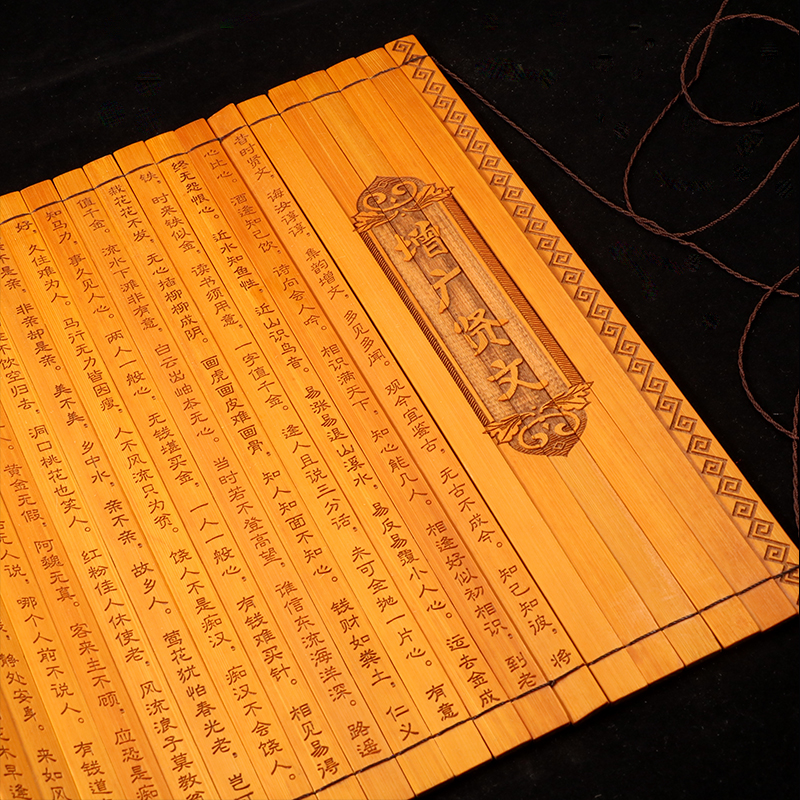 增广贤文
昔时贤文，诲汝谆谆，集韵增文，多见多闻。观今宜鉴古，无古不成今。知己知彼，将
心比心。酒逢知己饮，诗向会人吟。相识满天下，知心能几人。相逢好似初相识，到老
终无怨恨心。近水知鱼性，近山识鸟音。易张易退山溪水，易反易覆小人心。运去金成
铁，时来铁似金，读书须用意，一字值千金。逢人且说三分话，未可全抛一片心。有意
栽花花不发，无心插柳柳成阴。画虎画皮难画骨，知人知面不知心。钱财如粪土，仁义
值千金。流水下滩非有意，白云出岫本无心。当时若不登高望，谁信东流海洋深。路遥
知马力，事久见人心。两人一般心，无钱堪买金，一人一般心，有钱难买针。相见易得
好，久住难为人。马行无力皆因瘦，人不风流只为贫。饶人不是痴汉，痴汉不会饶人。
不是亲。非亲却是亲。美不美，乡中水，亲不亲，故乡人。莺花犹怕春光老，岂可
不饮空归去，洞口桃花也笑人。红粉佳人休使老，风流浪子莫教贫
黄金无假，阿魏无真。客来主不顾，应恐是痴
无人说，哪个人前不说人。有钱道
静处安身。来如风
木早逢